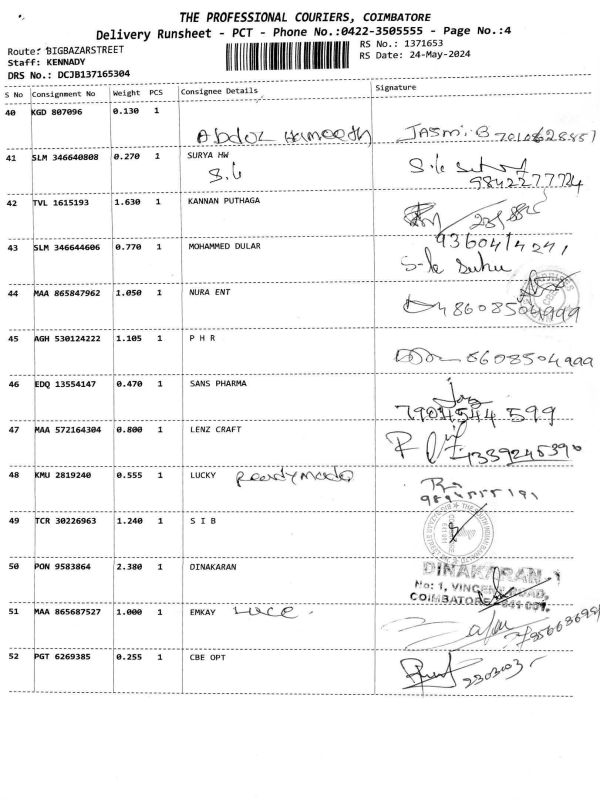 THE PROFESSIONAL COURIERS, COIMBATORE
Delivery Runsheet - PCT - Phone No.:0422-3505555 - Page No.:4
Route: BIGBAZARSTREET
RS No.: 1371653
Staff: KENNADY
RS Date: 24-May-2024
DRS No.: DCJB137165304
S No Consignment No Weight PCS Consignee Details Signature
40 KGD 807096 0.130 1
Abdul Hameedh JASMI.B
41 SLM 346640808 0.270 1 SURYA HW
S.k S.k 9842277724
42 TVL 1615193 1.630 1 KANNAN PUTHAGA
43 SLM 346644606 0.770 1 MOHAMMED DULAR
9360414241
44 MAA 865847962 1.050 1 NURA ENT
8608504999
45 AGH 530124222 1.105 1 P H R
8608504999
46 EDQ 13554147 0.470 1 SANS PHARMA
7904544 599
47 MAA 572164304 0.800 1 LENZ CRAFT
48 KMU 2819240 0.555 1 LUCKY Readymades
49 TCR 30226963 1.240 1 S I B
50 PON 9583864 2.380 1 DINAKARAN
DINAKARAN
No: 1, VINCENT ROAD,
COIMBATORE - 641 001.
51 MAA 865687527 1.000 1 EMKAY
52 PGT 6269385 0.255 1 CBE OPT